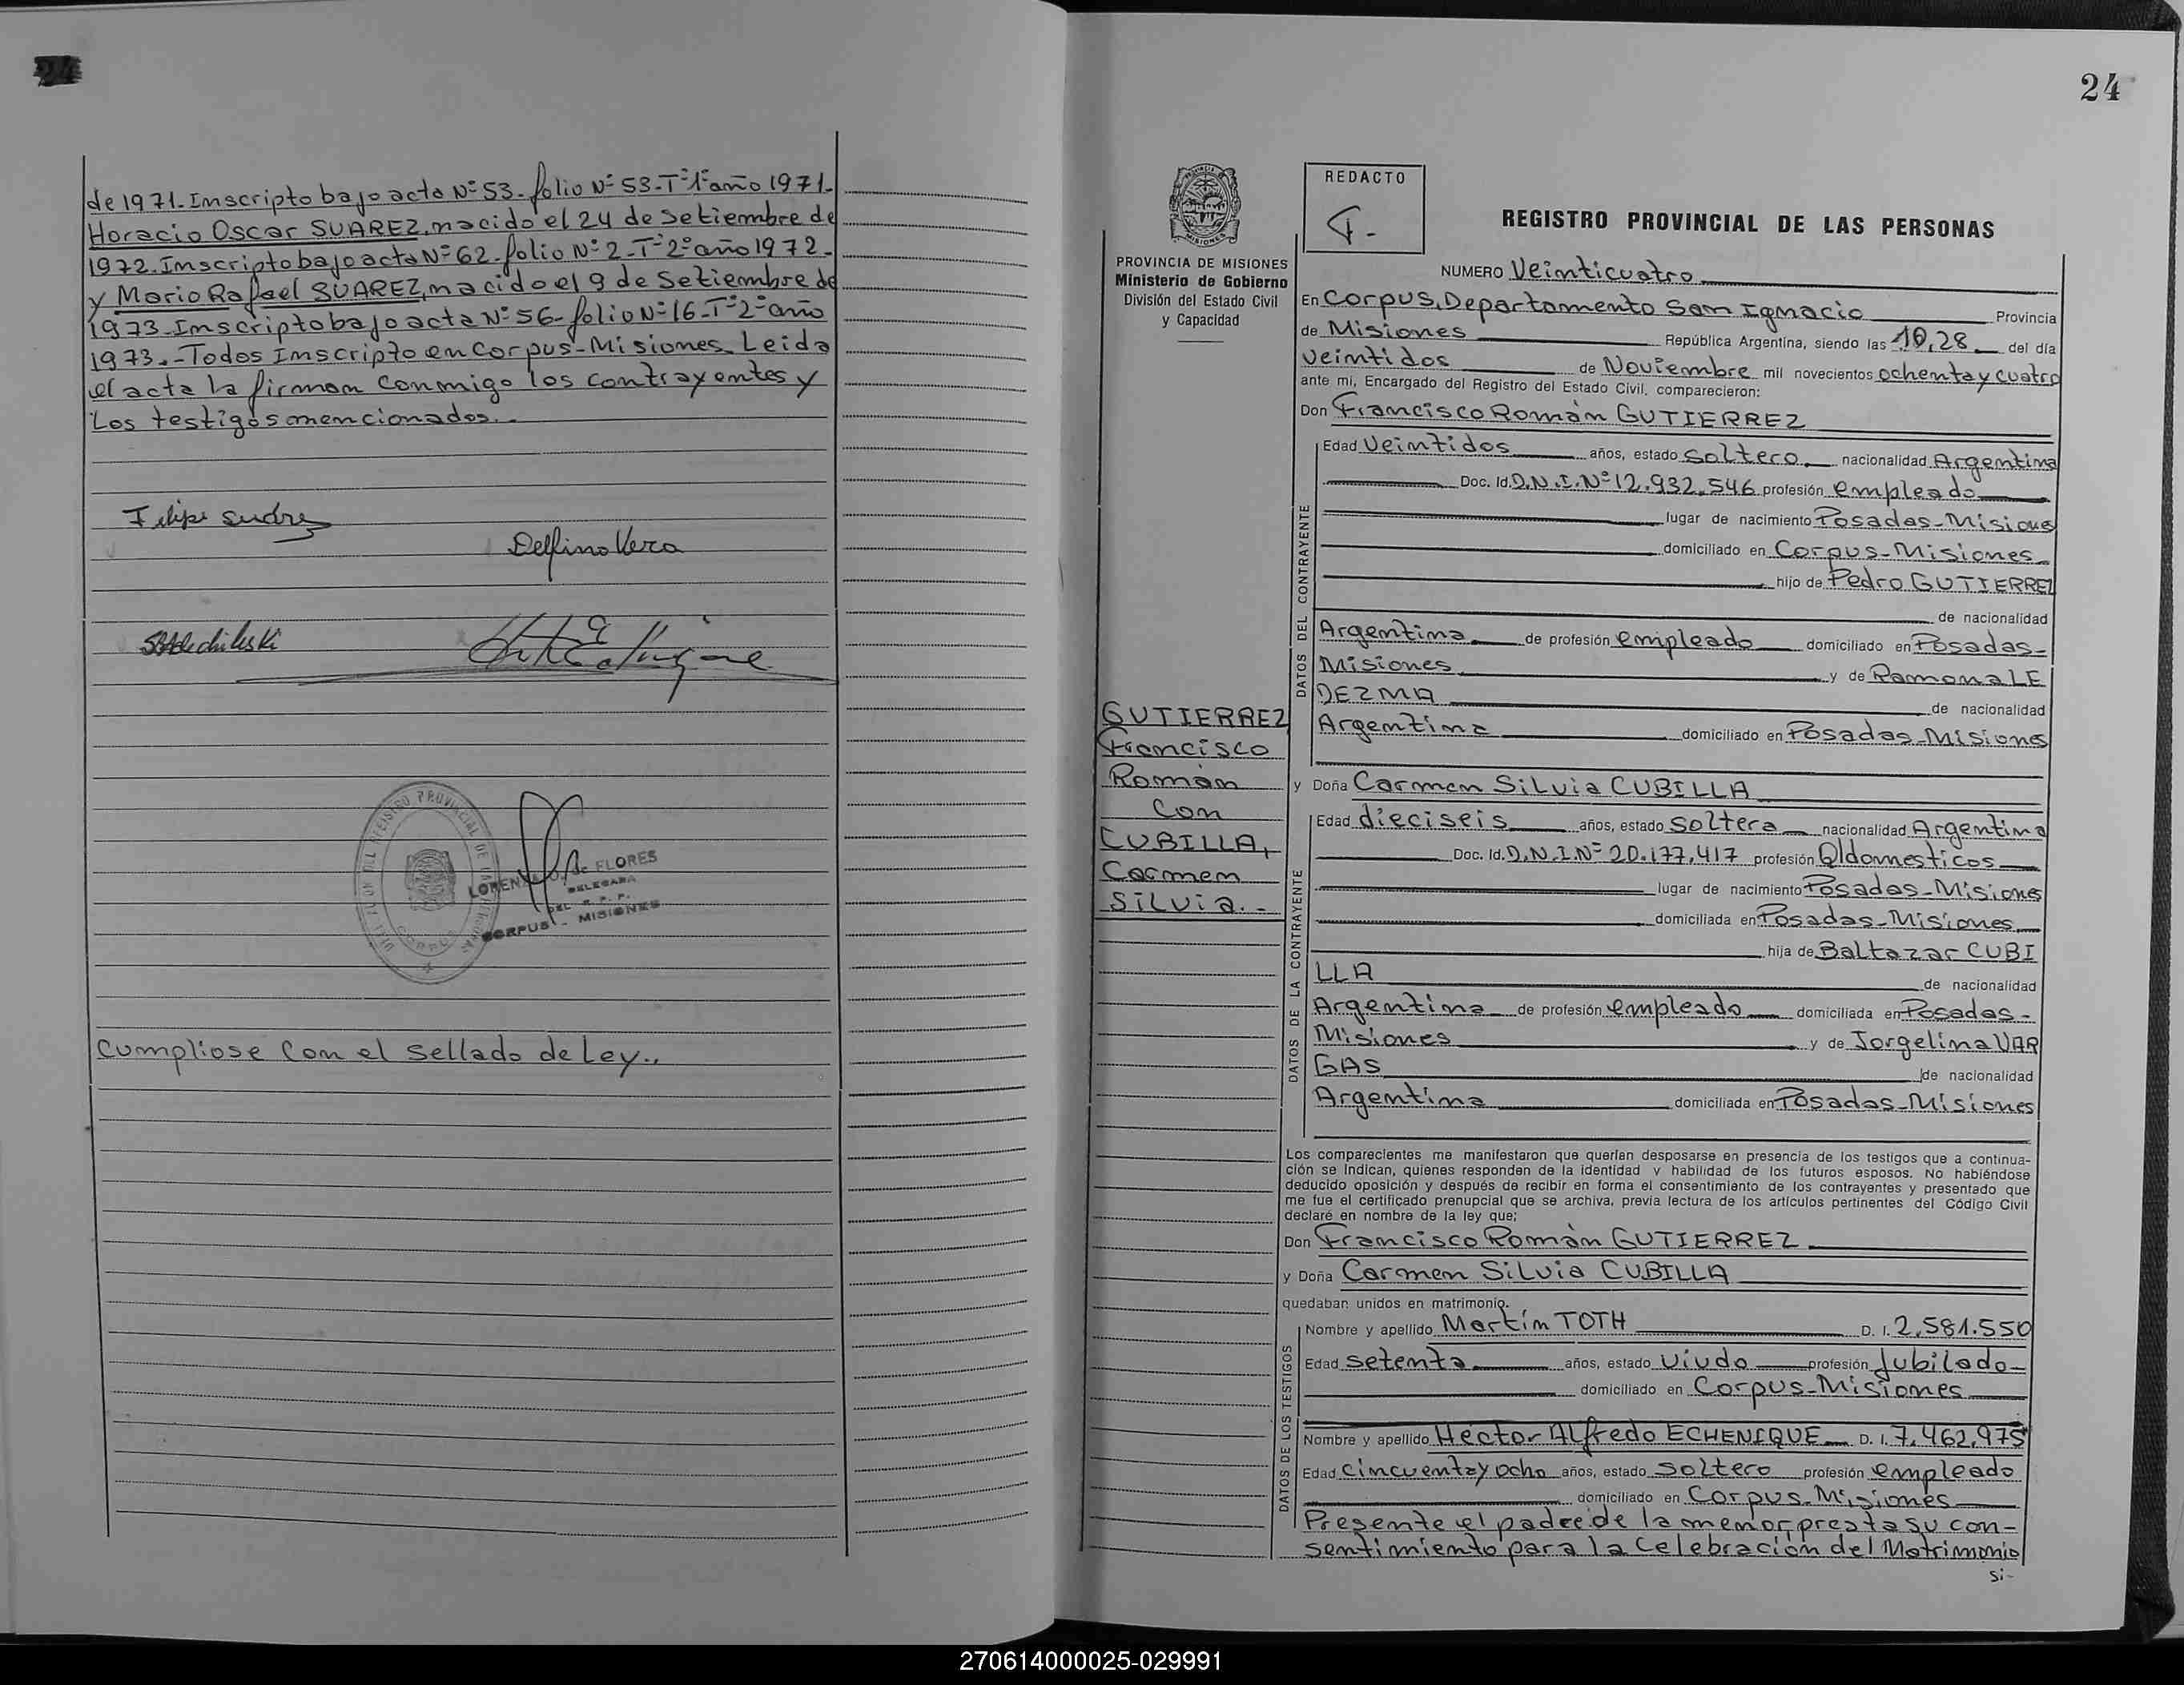 24
de 1971. Inscripto bajo acta Nº 53. folio Nº 53-Tº 1º año 1971.
Horacio Oscar SUAREZ, nacido el 24 de Setiembre de
1972. Inscripto bajo acta Nº 62. folio Nº 2. Tº 2º año 1972.
y Mario Rafael SUAREZ, nacido el 9 de Setiembre de
1973. Inscripto bajo acta Nº 56. folio Nº 16. Tº 2º año
1973.- Todos Inscripto en Corpus-Misiones. Leida
el acta la firman conmigo los contrayentes y
Los testigos mencionados.-
Delfino Vera
REGISTRO PROVINCIAL DE
CORPUS
de FLORES
DELEGADA
DEL R. P. P.
CORPUS - MISIONES
Cumpliose con el sellado de Ley.,
24
PROVINCIA DE MISIONES
Ministerio de Gobierno
División del Estado Civil
y Capacidad
REDACTO
REGISTRO PROVINCIAL DE LAS PERSONAS
NUMERO Veinticuatro
En Corpus, Departamento San Ignacio Provincia
de Misiones República Argentina, siendo las 10,28 del día
veintidos de Noviembre mil novecientos ochenta y cuatro
ante mi, Encargado del Registro del Estado Civil, comparecieron:
Don Francisco Román GUTIERREZ
DATOS DEL CONTRAYENTE
Edad Veintidos años, estado soltero nacionalidad Argentina
Doc. Id. D.N.I. Nº 12.932.546 profesión empleado
lugar de nacimiento Posadas-Misiones
domiciliado en Corpus-Misiones
hijo de Pedro GUTIERREZ
de nacionalidad
Argentina de profesión empleado domiciliado en Posadas-
Misiones y de Ramona LE
DEZMA de nacionalidad
Argentina domiciliado en Posadas-Misiones
GUTIERREZ
Francisco
Román
con
CUBILLA,
Carmen
Silvia.-
y Doña Carmen Silvia CUBILLA
DATOS DE LA CONTRAYENTE
Edad dieciseis años, estado soltera nacionalidad Argentina
Doc. Id. D.N.I. Nº 20.177.417 profesión Q/domesticos
lugar de nacimiento Posadas-Misiones
domiciliada en Posadas-Misiones
hija de Baltazar CUBI
LLA de nacionalidad
Argentina de profesión empleado domiciliada en Posadas-
Misiones y de Jorgelina VAR
GAS de nacionalidad
Argentina domiciliada en Posadas-Misiones
Los comparecientes me manifestaron que querían desposarse en presencia de los testigos que a continua-
ción se indican, quienes responden de la identidad y habilidad de los futuros esposos. No habiéndose
deducido oposición y después de recibir en forma el consentimiento de los contrayentes y presentado que
me fue el certificado prenupcial que se archiva, previa lectura de los artículos pertinentes del Código Civil
declaré en nombre de la ley que;
Don Francisco Román GUTIERREZ
y Doña Carmen Silvia CUBILLA
quedaban unidos en matrimonio.
DATOS DE LOS TESTIGOS
Nombre y apellido Martín TOTH D. I. 2.581.550
Edad setenta años, estado viudo profesión Jubilado
domiciliado en Corpus-Misiones
Nombre y apellido Héctor Alfredo ECHENIQUE D. I. 7.462.975
Edad cincuenta y ocho años, estado soltero profesión empleado
domiciliado en Corpus-Misiones
Presente el padre de la menor presta su con-
sentimiento para la celebración del Matrimonio
si-
270614000025-029991